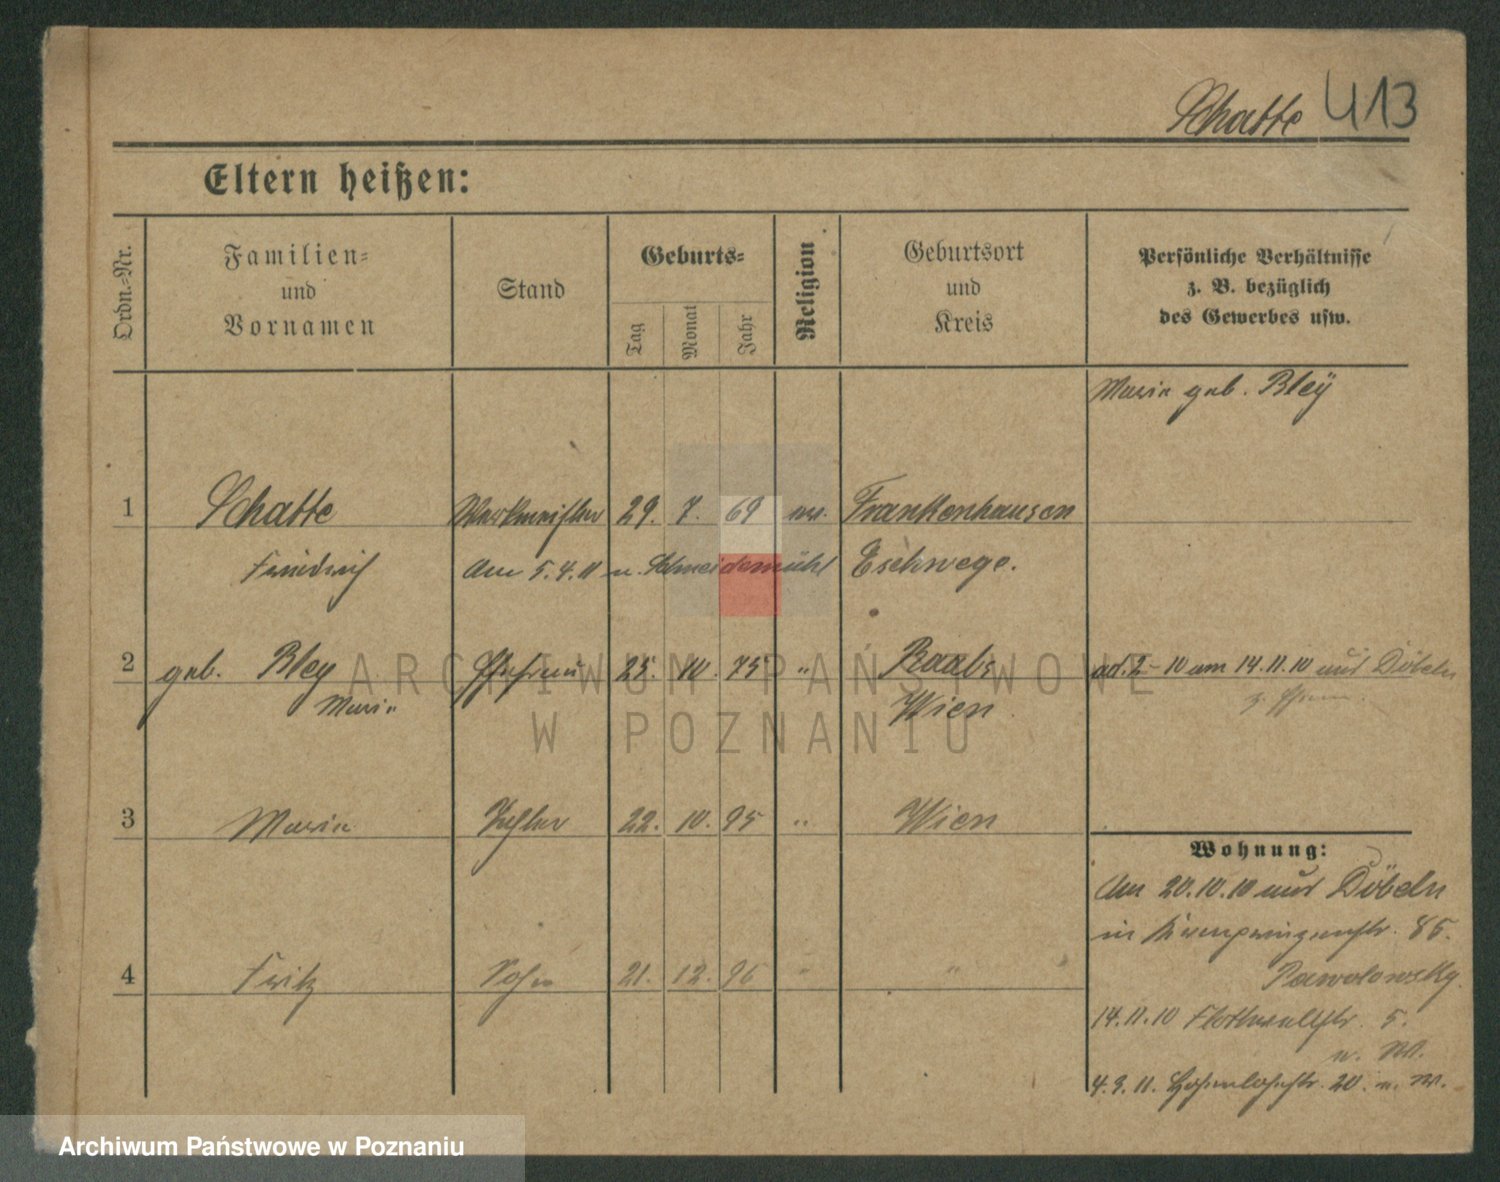 Schatte 413
Eltern heißen:
Ordn.-Nr.
Familien- und Vornamen
Stand
Geburts-
Tag
Monat
Jahr
Religion
Geburtsort und Kreis
Persönliche Verhältnisse
z. B. bezüglich
des Gewerbes usw.
Marie geb. Bley
1 Schatte Werkmeister 29. 7. 69 ev. Frankenhausen
Friedrich Am 5.4.11 n. Schneidemühl Eschwege.
2 geb. Bley Ehefrau 25. 10. 75 " Raabs ad. 2 - 10 am 14.11.10 aus Döbeln
Marie Wien
3 Marie Tochter 22. 10. 95 " Wien
Wohnung:
Am 20.10.10 aus Döbeln
in Kronprinzenstr. 85.
4 Fritz Sohn 21. 12. 96 " "
Pawolowsky.
14.11.10 Flottwellstr. 5.
n. W.
4.3.11. Hohenlohestr. 20. n. W.
ARCHIWUM PAŃSTWOWE
W POZNANIU
Archiwum Państwowe w Poznaniu